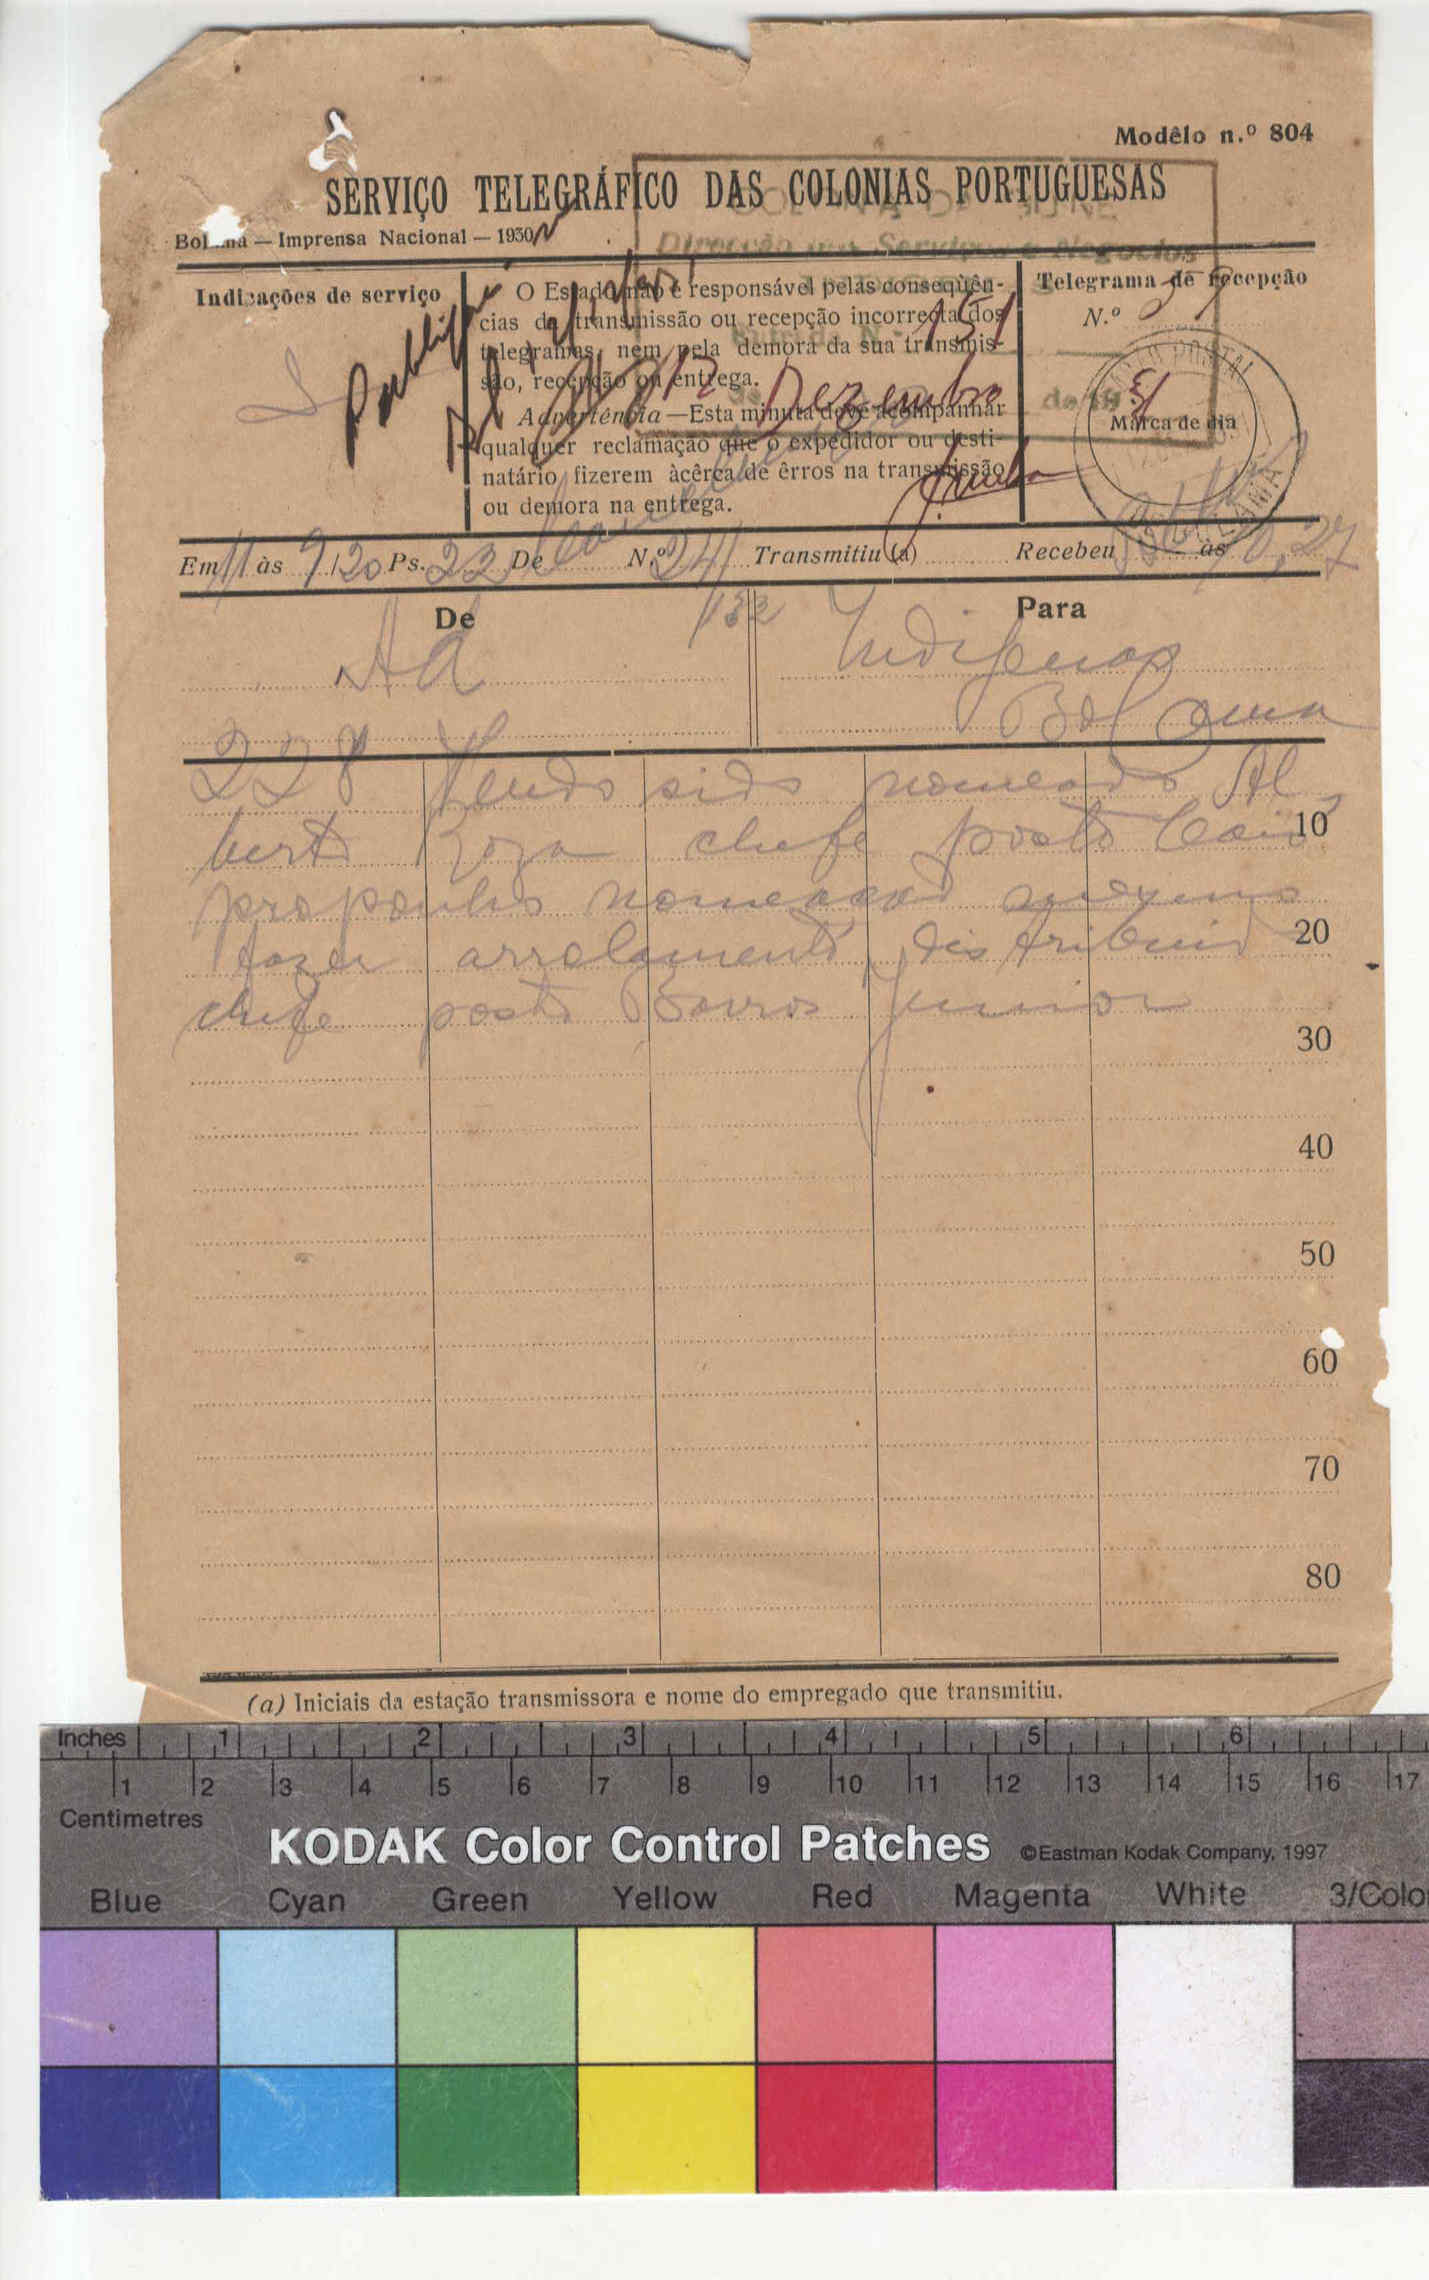 Modêlo n.º 804
SERVIÇO TELEGRÁFICO DAS COLONIAS PORTUGUESAS
— Imprensa Nacional — 1930
Direcção dos Serviços e Negocios
Indicações de serviço
O Estado não é responsável pelas conseqüên-
cias da transmissão ou recepção incorrecta dos
telegramas, nem pela demora da sua transmis-
são, recepção ou entrega.
Advertência — Esta minuta deve acompanhar
qualquer reclamação que o expedidor ou desti-
natário fizerem àcêrca de êrros na transmissão
ou demora na entrega.
151
12 Dezembro de 31
Telegrama de recepção
N.º
Marca de dia
Em 11 às 9/20 Ps. 22 De N.º 241 Transmitiu (a) Recebeu às 10,27
De
Para
Ad
132
Indigenas
Bolama
228 Tendo sido nomeado Al
berto Roza chefe posto
10
proponho nomeacao
20
fazer arrolamento distribuid
chefe posto Barros Junior
30
40
50
60
70
80
(a) Iniciais da estação transmissora e nome do empregado que transmitiu.
Inches 1 2 3 4 5 6
1 2 3 4 5 6 7 8 9 10 11 12 13 14 15 16 17
Centimetres
KODAK Color Control Patches ©Eastman Kodak Company, 1997
Blue Cyan Green Yellow Red Magenta White 3/Colo